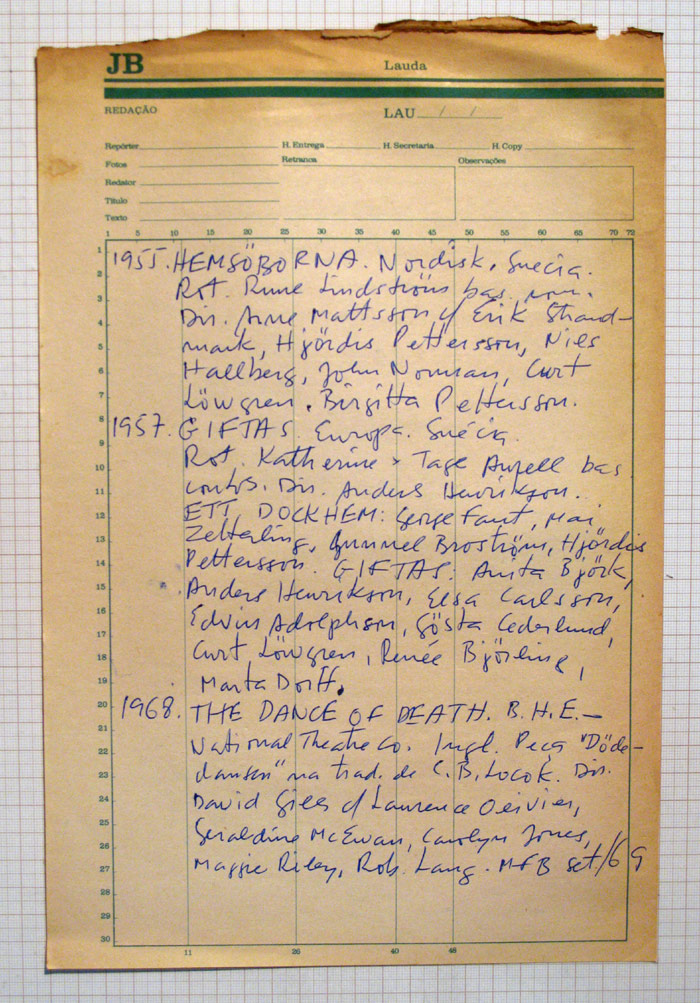 JB Lauda
REDAÇÃO LAU / /
Repórter H. Entrega H. Secretaria H. Copy
Fotos Retranca Observações
Redator
Título
Texto
1 5 10 15 20 25 30 35 40 45 50 55 60 65 70 72
1955. HEMSÖBORNA. Nordisk. Suécia.
Rot. Rune Lindströms bas. rom.
Dir. Arne Mattsson c/ Erik Strand-
mark, Hjördis Pettersson, Nils
Hallberg, John Norrman, Curt
Löwgren. Birgitta Pettersson.
1957. GIFTAS. Europa. Suécia.
Rot. Katherine & Tage Aurell bas.
contos. Dir. Anders Henrikson.
ETT DOCKHEM: George Fant, Mai
Zetterling, Gunnel Broström, Hjördis
Pettersson. GIFTAS: Anita Björk,
Anders Henrikson, Elsa Carlsson,
Edvin Adolphson, Gösta Cederlund,
Curt Löwgren, Renée Björling,
Marta Dorff.
1968. THE DANCE OF DEATH. B.H.E. –
National Theatre Co. Ingl. Peça "Döds-
dansen" na trad. de C.B. Locok. Dir.
David Giles c/ Laurence Olivier,
Geraldine McEwan, Carolyn Jones,
Maggie Riley, Rob. Lang. MFB set/69
1
2
3
4
5
6
7
8
9
10
11
12
13
14
15
16
17
18
19
20
21
22
23
24
25
26
27
28
29
30
11 26 40 48